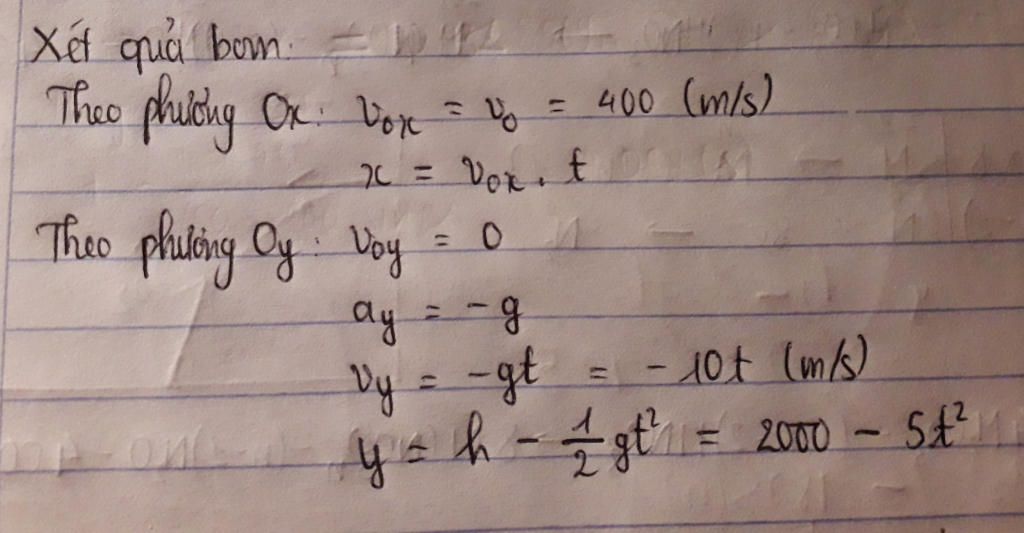 Xét quả bom:
Theo phương Ox: v₀ₓ = v₀ = 400 (m/s)
x = v₀ₓ . t
Theo phương Oy: v₀y = 0
ay = -g
vy = -gt = -10t (m/s)
y = h - 1/2 gt² = 2000 - 5t²